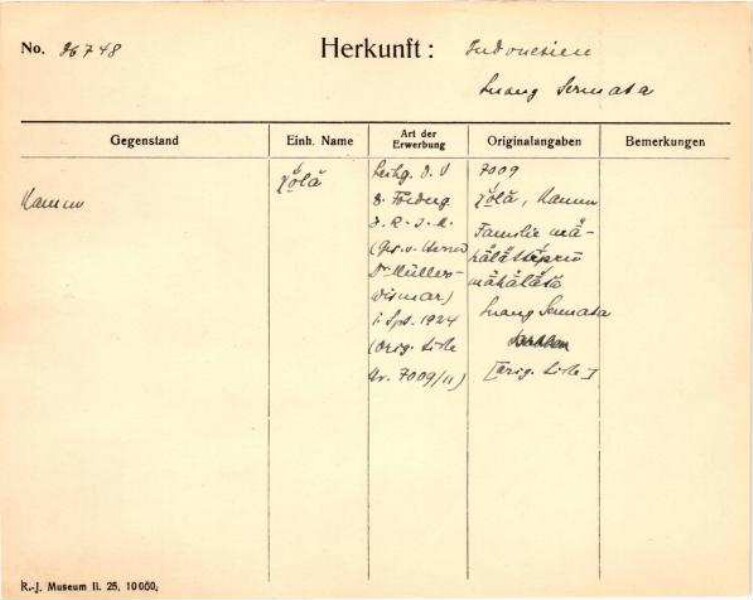 No. 26748
Herkunft: Indonesien
Luang Sermata
Gegenstand
Einh. Name
Art der Erwerbung
Originalangaben
Bemerkungen
Kamm
Leihg. d. V
d. Förderg
d. R.-J.-M.
(Ges. v. Herrn
Dr Müller-
Wismar)
1. Spt. 1924
(Orig. Liste
Nr. 7009/11)
7009
Kamm
Familie
Luang Sermata
[Orig. Liste]
R.-J. Museum II. 25. 10000.